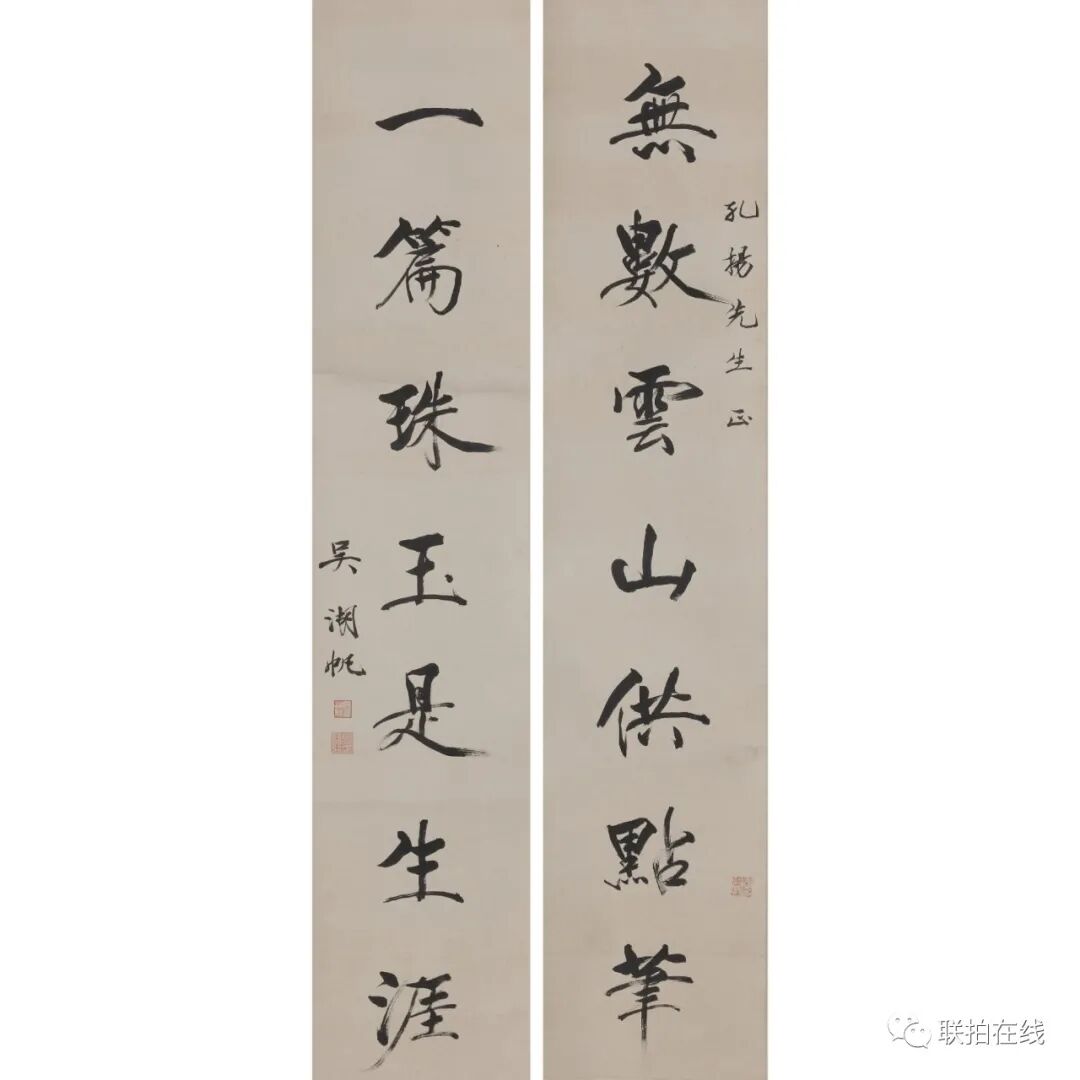 孔揚先生正
無數雲山供點筆
一篇珠玉是生涯
吳湖帆
联拍在线